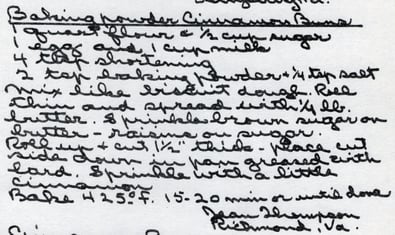 Baking powder Cinnamon Buns
1 quart flour & 1/2 cup sugar
1 egg and 1 cup milk
4 tbsp shortening
2 tsp baking powder & 1/4 tsp salt
Mix like biscuit dough. Roll
thin and spread with 1/4 lb.
butter. Sprinkle brown sugar on
butter - raisins on sugar.
Roll up & cut 1 1/2" thick - place cut
side down in pan greased with
lard. Sprinkle with a little
cinnamon
Bake 425°F. 15-20 min or until done
Jean Thompson
Richmond, Va.